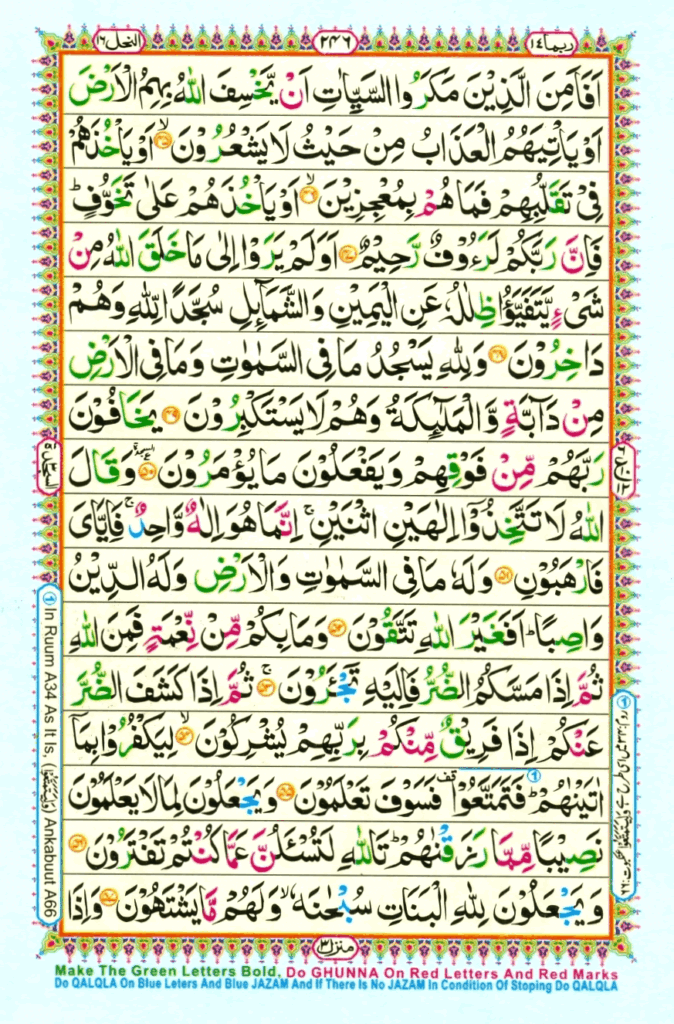 ربما ١٤
٢٤٦
النحل ١٦
اَفَاَمِنَ الَّذِيْنَ مَكَرُوا السَّيِّاٰتِ اَنْ يَّخْسِفَ اللّٰهُ بِهِمُ الْاَرْضَ
اَوْ يَاْتِيَهُمُ الْعَذَابُ مِنْ حَيْثُ لَا يَشْعُرُوْنَ ۙ‏﴿۴۵﴾ اَوْ يَاْخُذَهُمْ
فِيْ تَقَلُّبِهِمْ فَمَا هُمْ بِمُعْجِزِيْنَ ۙ‏﴿۴۶﴾ اَوْ يَاْخُذَهُمْ عَلٰى تَخَوُّفٍ ؕ
فَاِنَّ رَبَّكُمْ لَرَءُوْفٌ رَّحِيْمٌ ﴿۴۷﴾ اَوَلَمْ يَرَوْا اِلٰى مَا خَلَقَ اللّٰهُ مِنْ
شَيْءٍ يَّتَفَيَّؤُا ظِلٰلُهٗ عَنِ الْيَمِيْنِ وَالشَّمَآئِلِ سُجَّدًا لِّلّٰهِ وَهُمْ
دَاخِرُوْنَ ﴿۴۸﴾ وَلِلّٰهِ يَسْجُدُ مَا فِي السَّمٰوٰتِ وَمَا فِي الْاَرْضِ
مِنْ دَآبَّةٍ وَّالْمَلٰٓئِكَةُ وَهُمْ لَا يَسْتَكْبِرُوْنَ ﴿۴۹﴾ يَخَافُوْنَ
رَبَّهُمْ مِّنْ فَوْقِهِمْ وَيَفْعَلُوْنَ مَا يُؤْمَرُوْنَ ﴿۵۰﴾ وَقَالَ
اللّٰهُ لَا تَتَّخِذُوْٓا اِلٰهَيْنِ اثْنَيْنِ ۚ اِنَّمَا هُوَ اِلٰهٌ وَّاحِدٌ ۚ فَاِيَّايَ
فَارْهَبُوْنِ ﴿۵۱﴾ وَلَهٗ مَا فِي السَّمٰوٰتِ وَالْاَرْضِ وَلَهُ الدِّيْنُ
وَاصِبًا ؕ اَفَغَيْرَ اللّٰهِ تَتَّقُوْنَ ﴿۵۲﴾ وَمَا بِكُمْ مِّنْ نِّعْمَةٍ فَمِنَ اللّٰهِ
ثُمَّ اِذَا مَسَّكُمُ الضُّرُّ فَاِلَيْهِ تَجْئَرُوْنَ ۚ‏﴿۵۳﴾ ثُمَّ اِذَا كَشَفَ الضُّرَّ
عَنْكُمْ اِذَا فَرِيْقٌ مِّنْكُمْ بِرَبِّهِمْ يُشْرِكُوْنَ ۙ‏﴿۵۴﴾ لِيَكْفُرُوْا بِمَآ
اٰتَيْنٰهُمْ ؕ فَتَمَتَّعُوْا قف فَسَوْفَ تَعْلَمُوْنَ ﴿۵۵﴾ وَيَجْعَلُوْنَ لِمَا لَا يَعْلَمُوْنَ
نَصِيْبًا مِّمَّا رَزَقْنٰهُمْ ؕ تَاللّٰهِ لَتُسْئَلُنَّ عَمَّا كُنْتُمْ تَفْتَرُوْنَ ﴿۵۶﴾
وَيَجْعَلُوْنَ لِلّٰهِ الْبَنَاتِ سُبْحٰنَهٗ ۙ وَلَهُمْ مَّا يَشْتَهُوْنَ ﴿۵۷﴾ وَاِذَا
منزل ٣
① In Ruum A34 As It Is, Ankabuut A66
Make The Green Letters Bold, Do GHUNNA On Red Letters And Red Marks
Do QALQLA On Blue Leters And Blue JAZAM And If There Is No JAZAM In Condition Of Stoping Do QALQLA